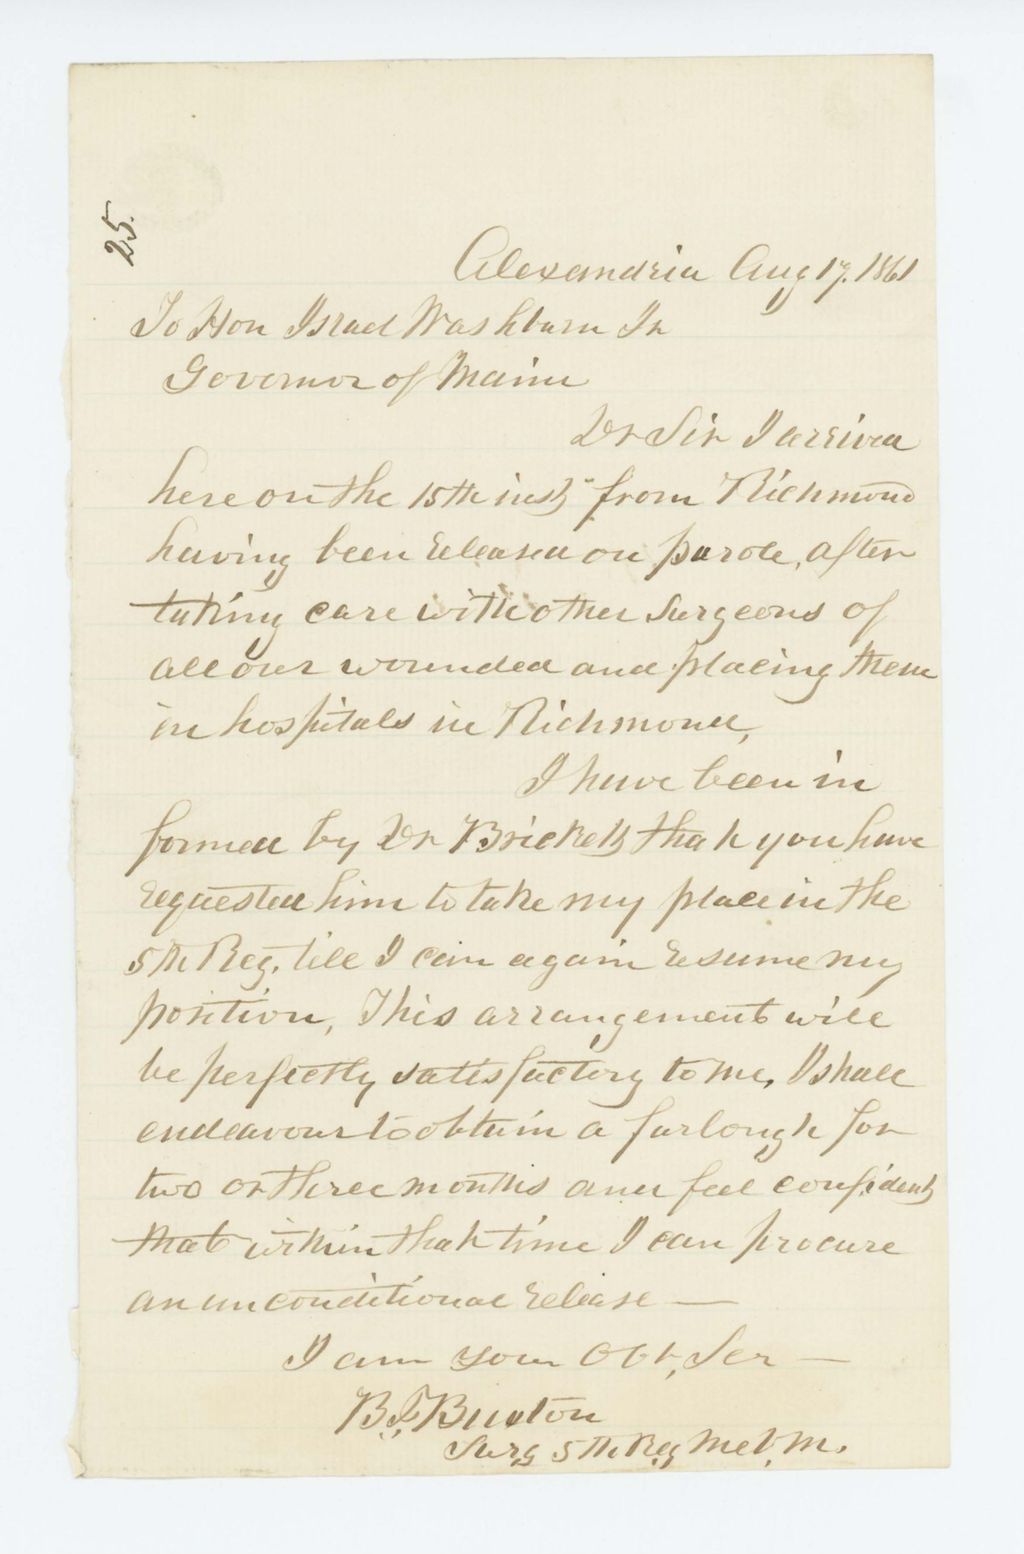 25.
Alexandria Aug 17. 1861
To Hon Israel Washburn Jr
Governor of Maine
Dr Sir I arrived
here on the 15th inst from Richmond
having been released on parole, after
taking care with other surgeons of
all our wounded and placing them
in hospitals in Richmond,
I have been in
formed by Dr Brickett that you have
requested him to take my place in the
5th Reg. till I can again resume my
position, This arrangement will
be perfectly satisfactory to me. I shall
endeavour to obtain a furlough for
two or three months and feel confident
that within that time I can procure
an unconditional release —
I am your Obt, Ser —
B. F. Buxton
Surg 5th Reg Me V. M.